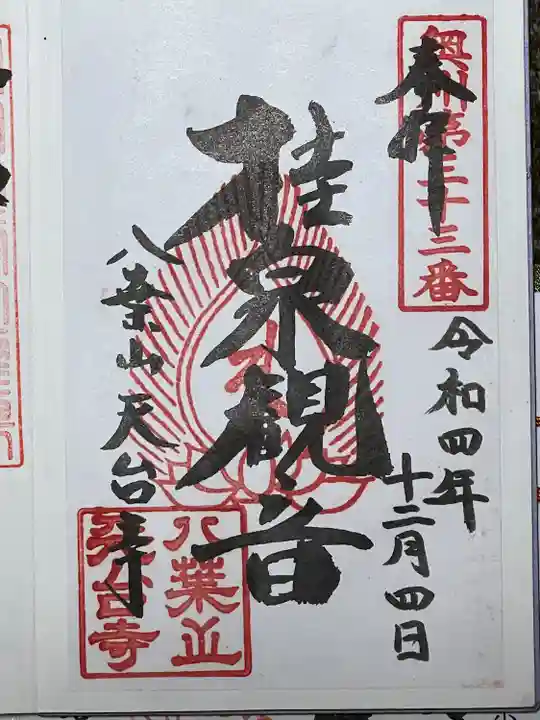 奉拝
奥州第三十三番
令和四年
十二月四日
桂泉観音
八葉山天台寺
八葉山
天台寺